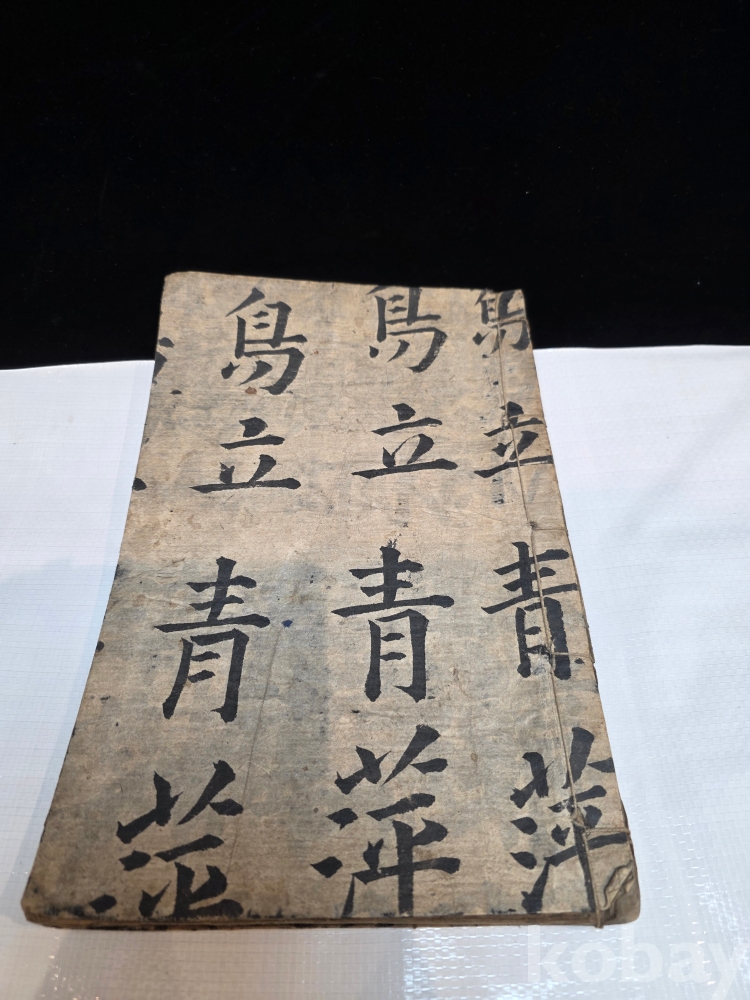 鳥立青萍
鳥立青萍
鳥立青萍
kobay